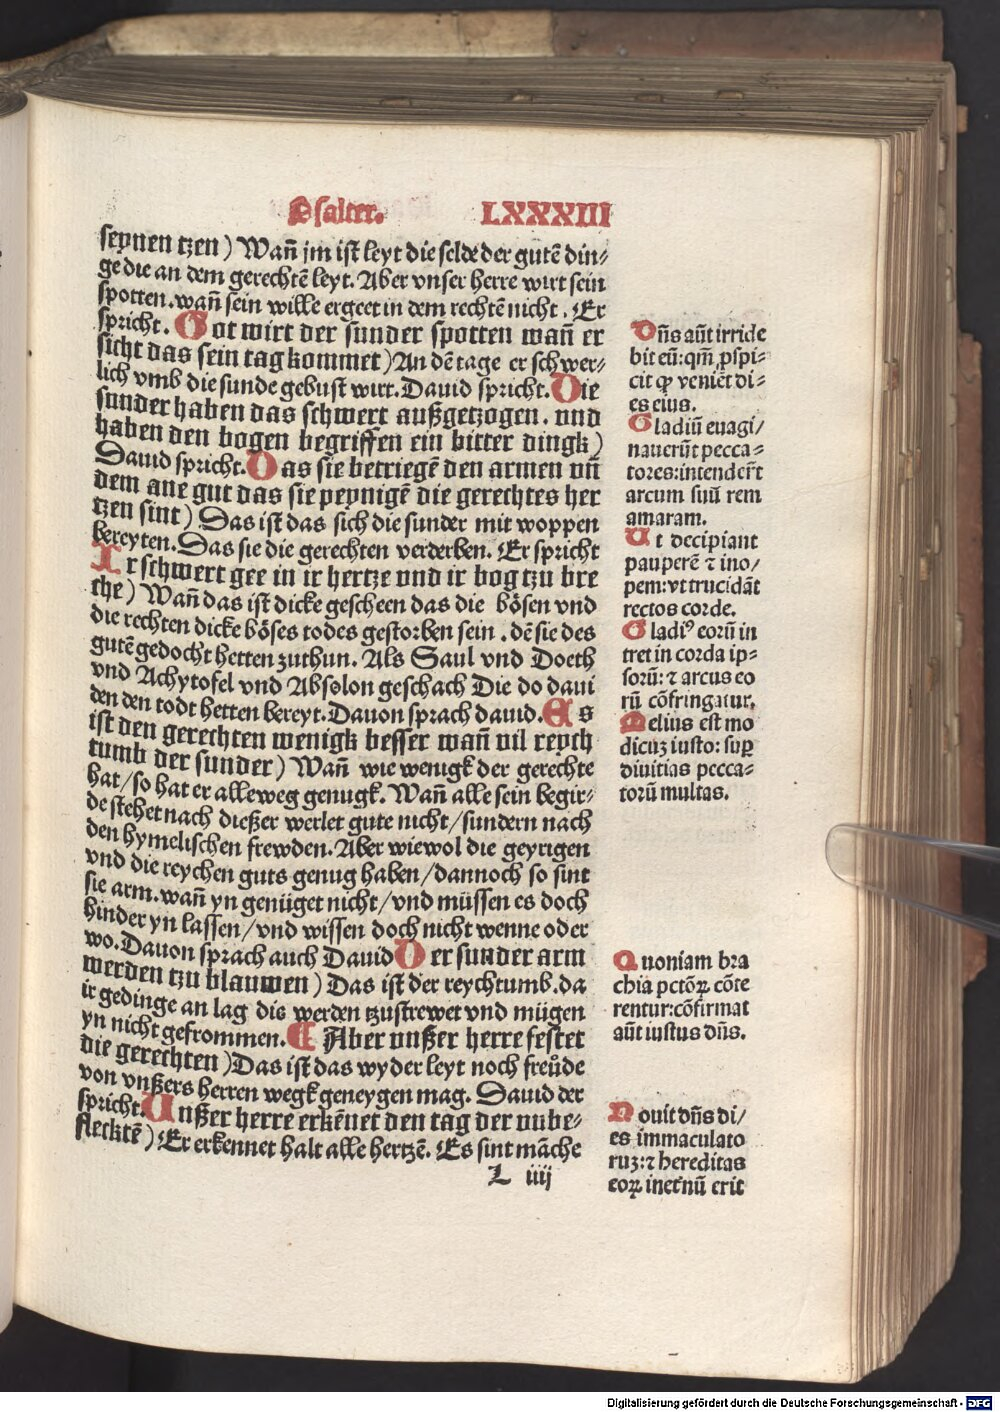 Psalter. LXXXIII
seynen tzen) Wañ jm ist leyt die selde der gutē din/
ge die an dem gerechtē leyt. Aber vnser herre wirt sein
spotten. wañ sein wille ergeet in dem rechtē nicht. Er
spricht. Got wirt der sunder spotten wañ er
sicht das sein tag kommet) An dē tage er schwer/
lich vmb die sunde gebust wirt. Dauid spricht. Die
sunder haben das schwert außgetzogen. vnd
haben den bogen begriffen ein bitter dingk)
Dauid spricht. Das sie betriegē den armen vñ
dem ane gut das sie peynigē die gerechtes her
tzen sint) Das ist das sich die sunder mit woppen
bereyten. Das sie die gerechten verderben. Er spricht
Ir schwert gee in ir hertze vnd ir bog tzu bre
che) Wañ das ist dicke gescheen das die bösen vnd
die rechten dicke böses todes gestorben sein. dē sie des
gutē gedocht hetten zuthun. Als Saul vnd Doeth
vnd Achytofel vnd Absolon geschach Die do daui
den den todt hetten bereyt. Dauon sprach dauid. Es
ist den gerechten wenigk besser wañ vil reych
tumb der sunder) Wañ wie wenigk der gerechte
hat/so hat er alleweg genugk. Wañ alle sein begir/
de stehet nach dießer werlet gute nicht/sundern nach
den hymelischen frewden. Aber wiewol die geyrigen
vnd die reychen guts genug haben/dannoch so sint
sie arm. wañ yn genüget nicht/vnd müssen es doch
hinder yn lassen/vnd wissen doch nicht wenne oder
wo. Dauon sprach auch Dauid Der sunder arm
werden tzu blauwen) Das ist der reychtumb. da
ir gedinge an lag die werden tzustrewet vnd mügen
yn nicht gefrommen. ¶ Aber vnßer herre festet
die gerechten) Das ist das wyder leyt noch freůde
von vnßers herren wegk geneygen mag. Dauid der
spricht. Unßer herre erkēnet den tag der vnbe/
flecktē) Er erkennet halt alle hertzē. Es sint māche
L iiij
Dñs aūt irride
bit eū: qm̄ ꝓspi/
cit ꝙ veniēt di/
es eius.
Gladiū euagi/
nauerūt pecca/
tores: intendert̄
arcum suū rem
amaram.
Ut decipiant
pauperē ⁊ ino/
pem: vt trucidāt
rectos corde.
Gladiꝰ eorū in
tret in corda ip/
sorū: ⁊ arcus eo
rū cōfringatur.
Melius est mo
dicuz iusto: suꝑ
diuitias pecca/
torū multas.
Quoniam bra
chia pctōꝝ cōte
rentur: cōfirmat
aūt iustus dñs.
Nouit dñs di/
es immaculato
ruz: ⁊ hereditas
eoꝝ inet̄nū erit
Digitalisierung gefördert durch die Deutsche Forschungsgemeinschaft - DFG